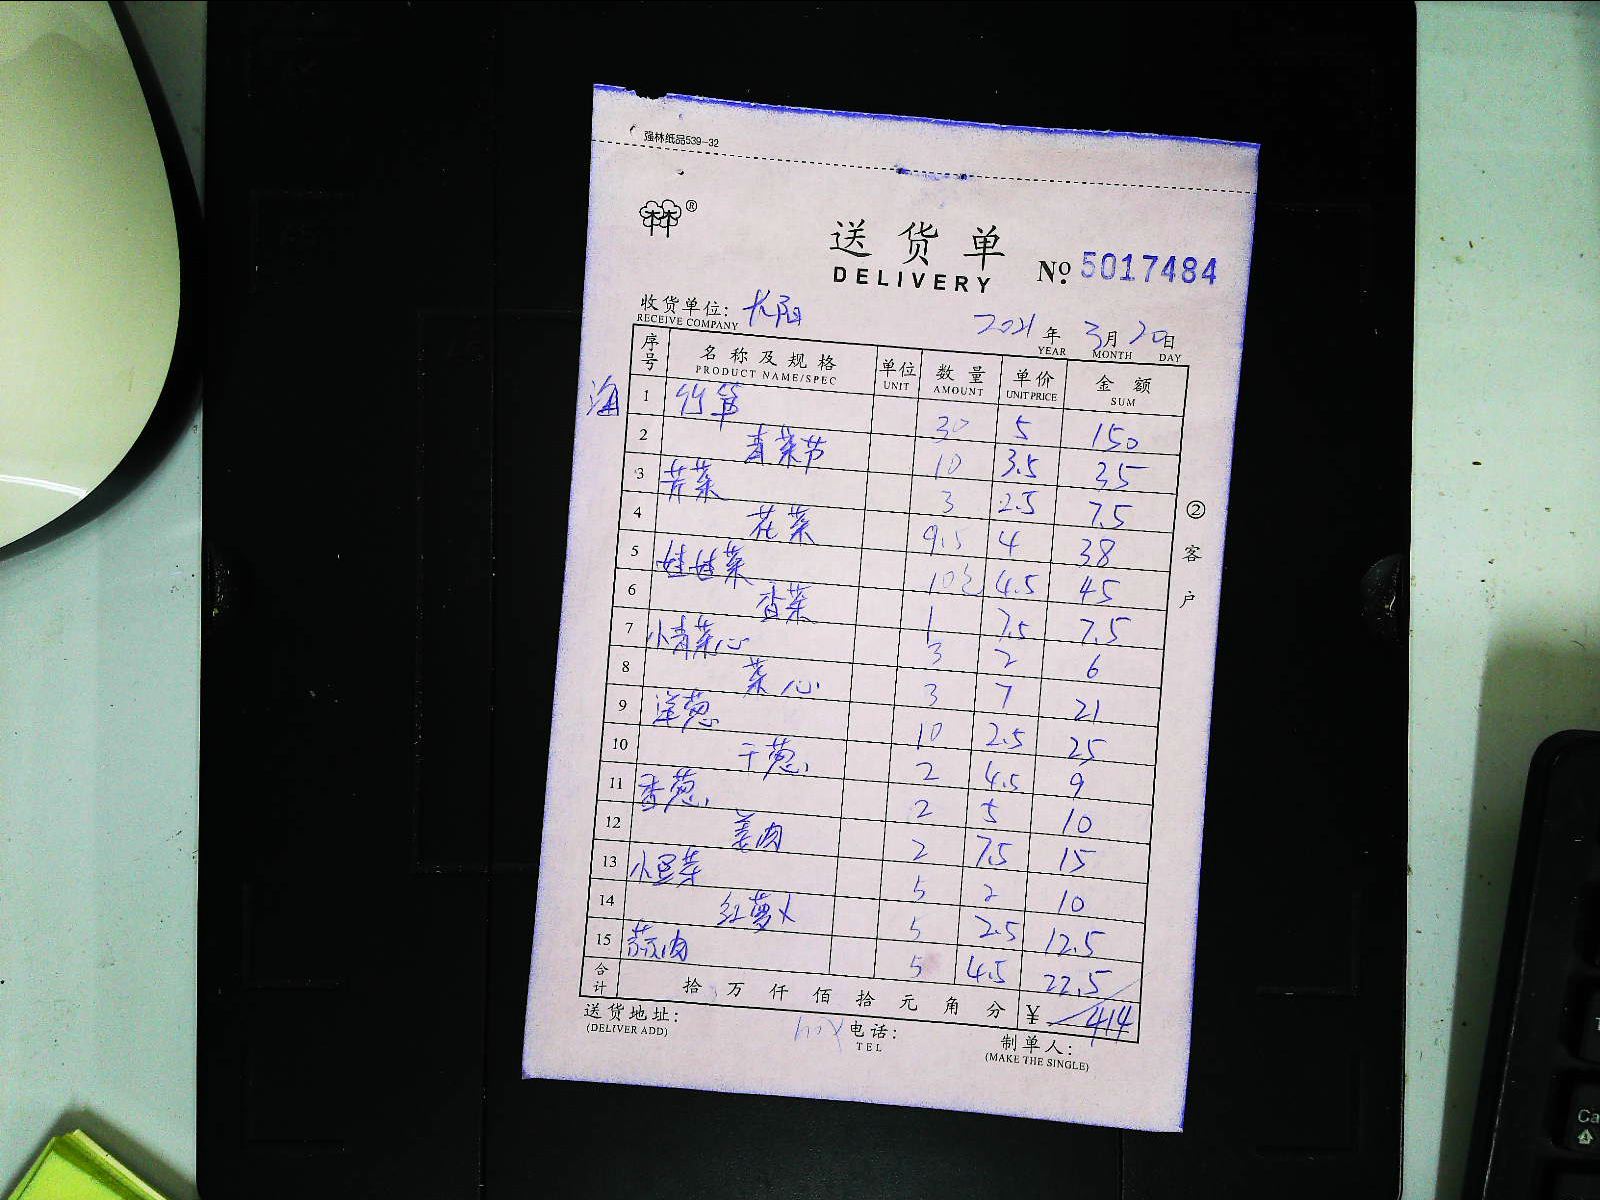 强林纸品539-32
®
送货单
DELIVERY
No. 5017484
收货单位: 长阳
RECEIVE COMPANY
2021年 3月 20日
YEAR MONTH DAY
序号 名称及规格 单位 数量 单价 金额
PRODUCT NAME/SPEC UNIT AMOUNT UNIT PRICE SUM
海
1 竹笋 30 5 150
2 青菜节 10 3.5 35
3 芹菜 3 2.5 7.5
4 花菜 9.5 4 38
5 娃娃菜 10包 4.5 45
6 香菜 1 7.5 7.5
7 小青菜心 3 2 6
8 菜心 3 7 21
9 洋葱 10 2.5 25
10 干葱 2 4.5 9
11 香葱 2 5 10
12 姜肉 2 7.5 15
13 小豆芽 5 2 10
14 红萝卜 5 2.5 12.5
15 蒜肉 5 4.5 22.5
合计 拾 万 仟 佰 拾 元 角 分 ¥ 414
送货地址: 电话: 制单人:
(DELIVER ADD) TEL (MAKE THE SINGLE)
②客户
Ca